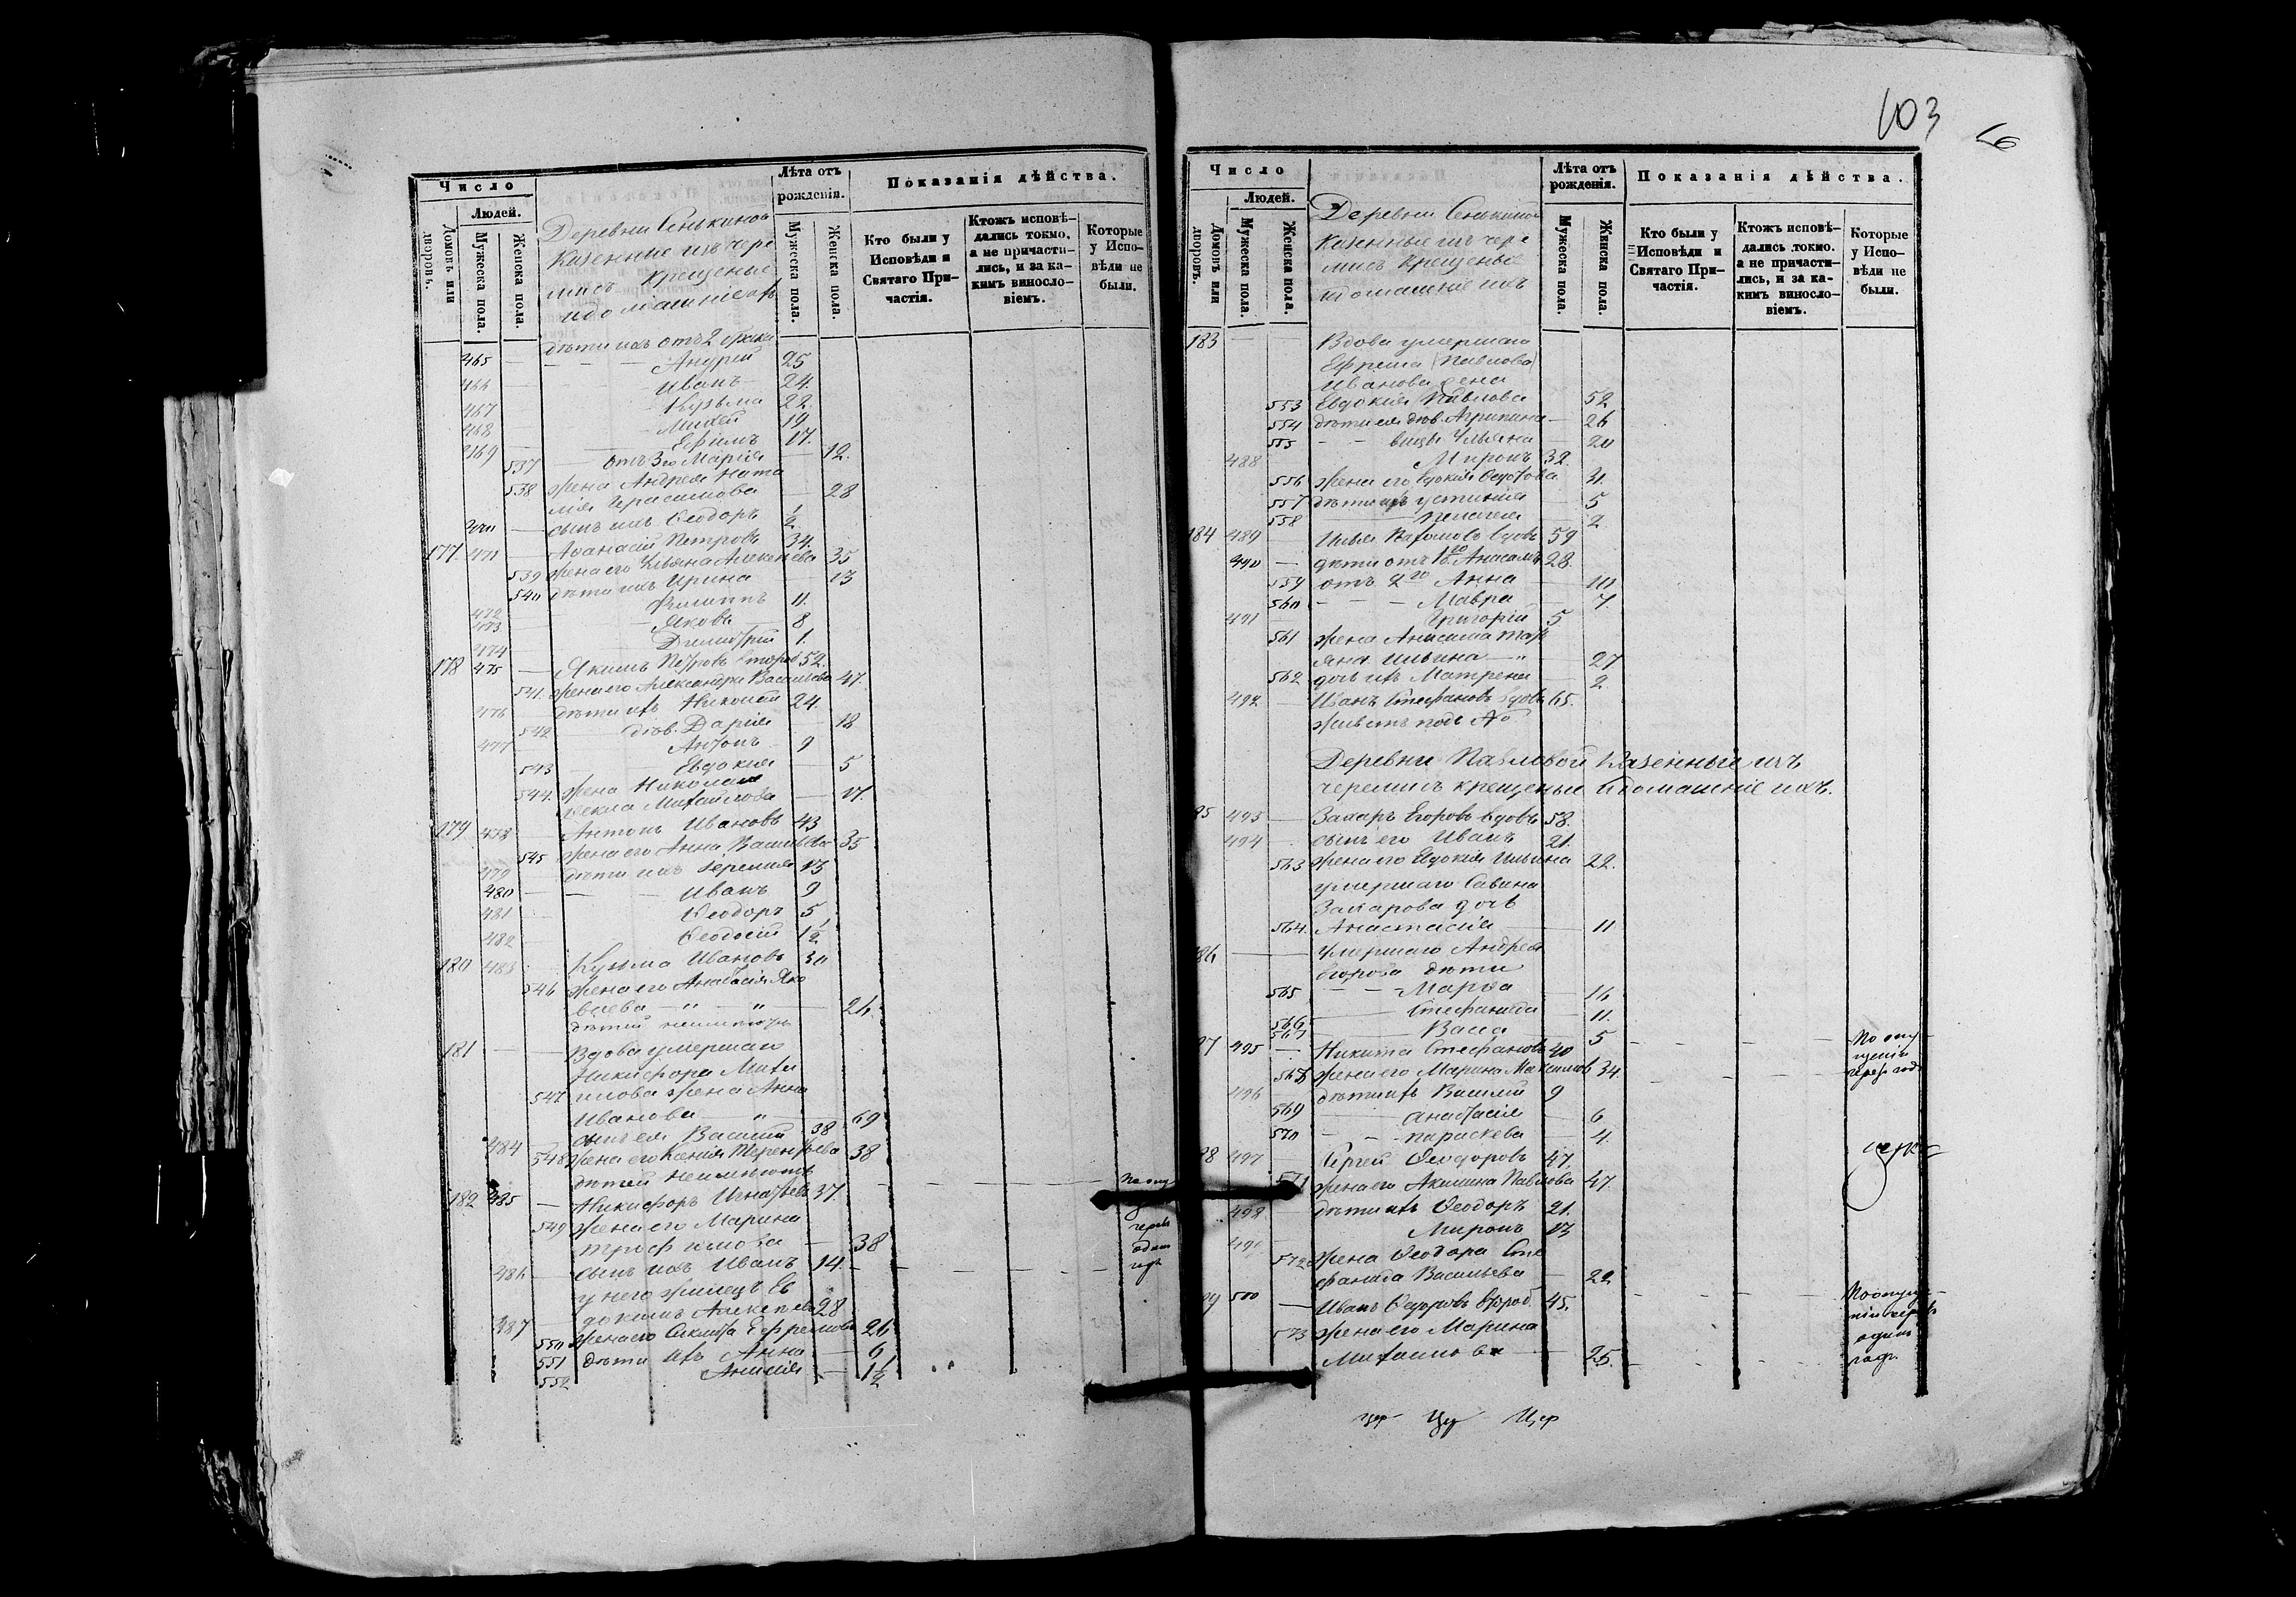 103
Число
Людей.
Домовъ или дворовъ.
Мужеска пола.
Женска пола.
Деревни Сенькиной
Казенные изъ чере
мисъ крещеные
и домашніе ихъ
Лѣта отъ рожденія.
Мужеска пола.
Женска пола.
Показанія дѣйства.
Кто были у Исповѣди и Святаго Причастія.
Ктожъ исповѣдались токмо, а не причастились, и за какимъ винословіемъ.
Которые у Исповѣди не были.
дѣти ихъ отъ 2 брака
465 — Андрей 25
466 Иванъ 24.
467 Кузьма 22.
468 Михей 19
469 Ефимъ 17.
537 отъ 3го Марія — 12.
538 жена Андрея Ната
лія Герасимова — 28
470 — сынъ ихъ Ѳеодоръ 1/2
177. 471 Аѳанасій Петровъ 34.
539 жена его Ульяна Алексѣева 35
540 дѣти ихъ Ирина — 13
472 Филиппъ 11.
473 Яковъ 8
474 Димитрій 1.
178 475 — Якимъ Петровъ 52.
541. жена его Александра Васильева 47.
476 дѣти ихъ Николай 24.
542 дѣв. Дарія — 18
477 Антонъ 9
543 Евдокія — 5
544. жена Николая
Ѳекла Михайлова — 17.
179 478 Антонъ Ивановъ 43
545 жена его Анна Васильева 35
479 дѣти ихъ Іеремія 13
480 — Иванъ 9
481 Ѳеодоръ 5
482 Ѳеодосій 1 1/2
180 483 Кузьма Ивановъ 30
546 жена его Анастасія Яко
влева — " — " — 26.
дѣтей неимѣютъ
181 — — Вдова умершаго
Никифора Михай
547. лова жена Анна
Иванова — " — 69
484 сынъ ея Василій 38
548 жена его Ксенія Терентьева 38
дѣтей неимѣютъ
182 485 — Никифоръ Игнатьевъ 37.
549 жена его Марина
Трофимова — 38
486 — сынъ ихъ Иванъ 14.
у него жилецъ Ев
487 докимъ Алексѣевъ 28
550 жена его Ефремова 26
551 дѣти ихъ Анна — 6
552 Анисія — 1 1/2
Число
Людей.
Домовъ или дворовъ.
Мужеска пола.
Женска пола.
Деревни Сенькиной
Казенные изъ чере
мисъ крещеные
и домашніе ихъ
Лѣта отъ рожденія.
Мужеска пола.
Женска пола.
Показанія дѣйства.
Кто были у Исповѣди и Святаго Причастія.
Ктожъ исповѣдались токмо, а не причастились, и за какимъ винословіемъ.
Которые у Исповѣди не были.
183 — — Вдова умершаго
Ефрема (Павлова)
Иванова жена
553 Евдокія Павлова 52
554 дѣти ея дѣв. Агрипина — 26
555 — — Ульяна 20
488 Миронъ 32.
556 жена его Евдокія Ѳедотова 31.
557 дѣти ихъ Устинія — 5
558 Пелагея — 2
184 489 — Илья вдовъ 59
490 — дѣти отъ 1го Анисимъ 28.
559 отъ 2го Анна — 10
560 — — — Мавра 7
491 Григорій 5
561 жена Анисима Тать
яна Ильина — " 27
562 дочь ихъ Матрена — 2
492 — Иванъ Стефановъ вдовъ 65.
живетъ подъ №
Деревни Павловой Казенные изъ
черемисъ крещеные и домашніе ихъ.
85 493 — Захаръ Егоровъ вдовъ 58.
494 — сынъ его Иванъ 21.
563 жена его Евдокія Ильина 22.
умершаго Савина
Захарова дочь
564. Анастасія 11
86 — — умершаго Андрея
Егорова дѣти
565 — — Марѳа — 16
566 Стефанида — 11.
567 Васса — 5
87 495 — Никита Стефановъ 40
568 жена его Марина Максимова 34.
496 дѣти ихъ Василій 9
569 Анастасія — 6
570 — — Параскева — 4.
88 497 Сергей Ѳеодоровъ 47.
571 жена его Акилина Павлова 47.
498 дѣти ихъ Ѳеодоръ 21.
499 Миронъ 13
572 жена Ѳеодора Сте
фанида Васильева — 22
89 500 — Иванъ Ѳедоровъ 45.
573 жена его Марина
Михайлова — 25.